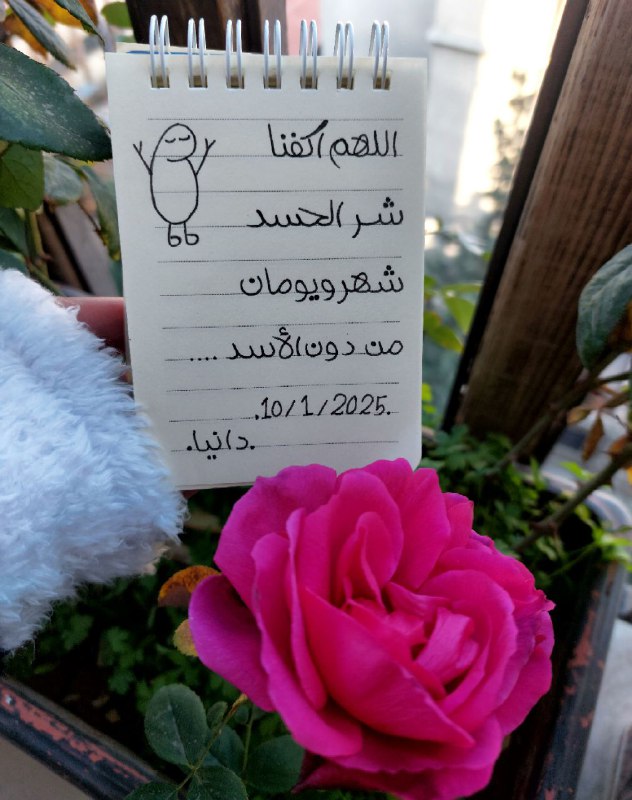 اللهم اكفنا
شر الحسد
شهر ويومان
من دون الأسد ....
.10/1/2025.
.دانيا.